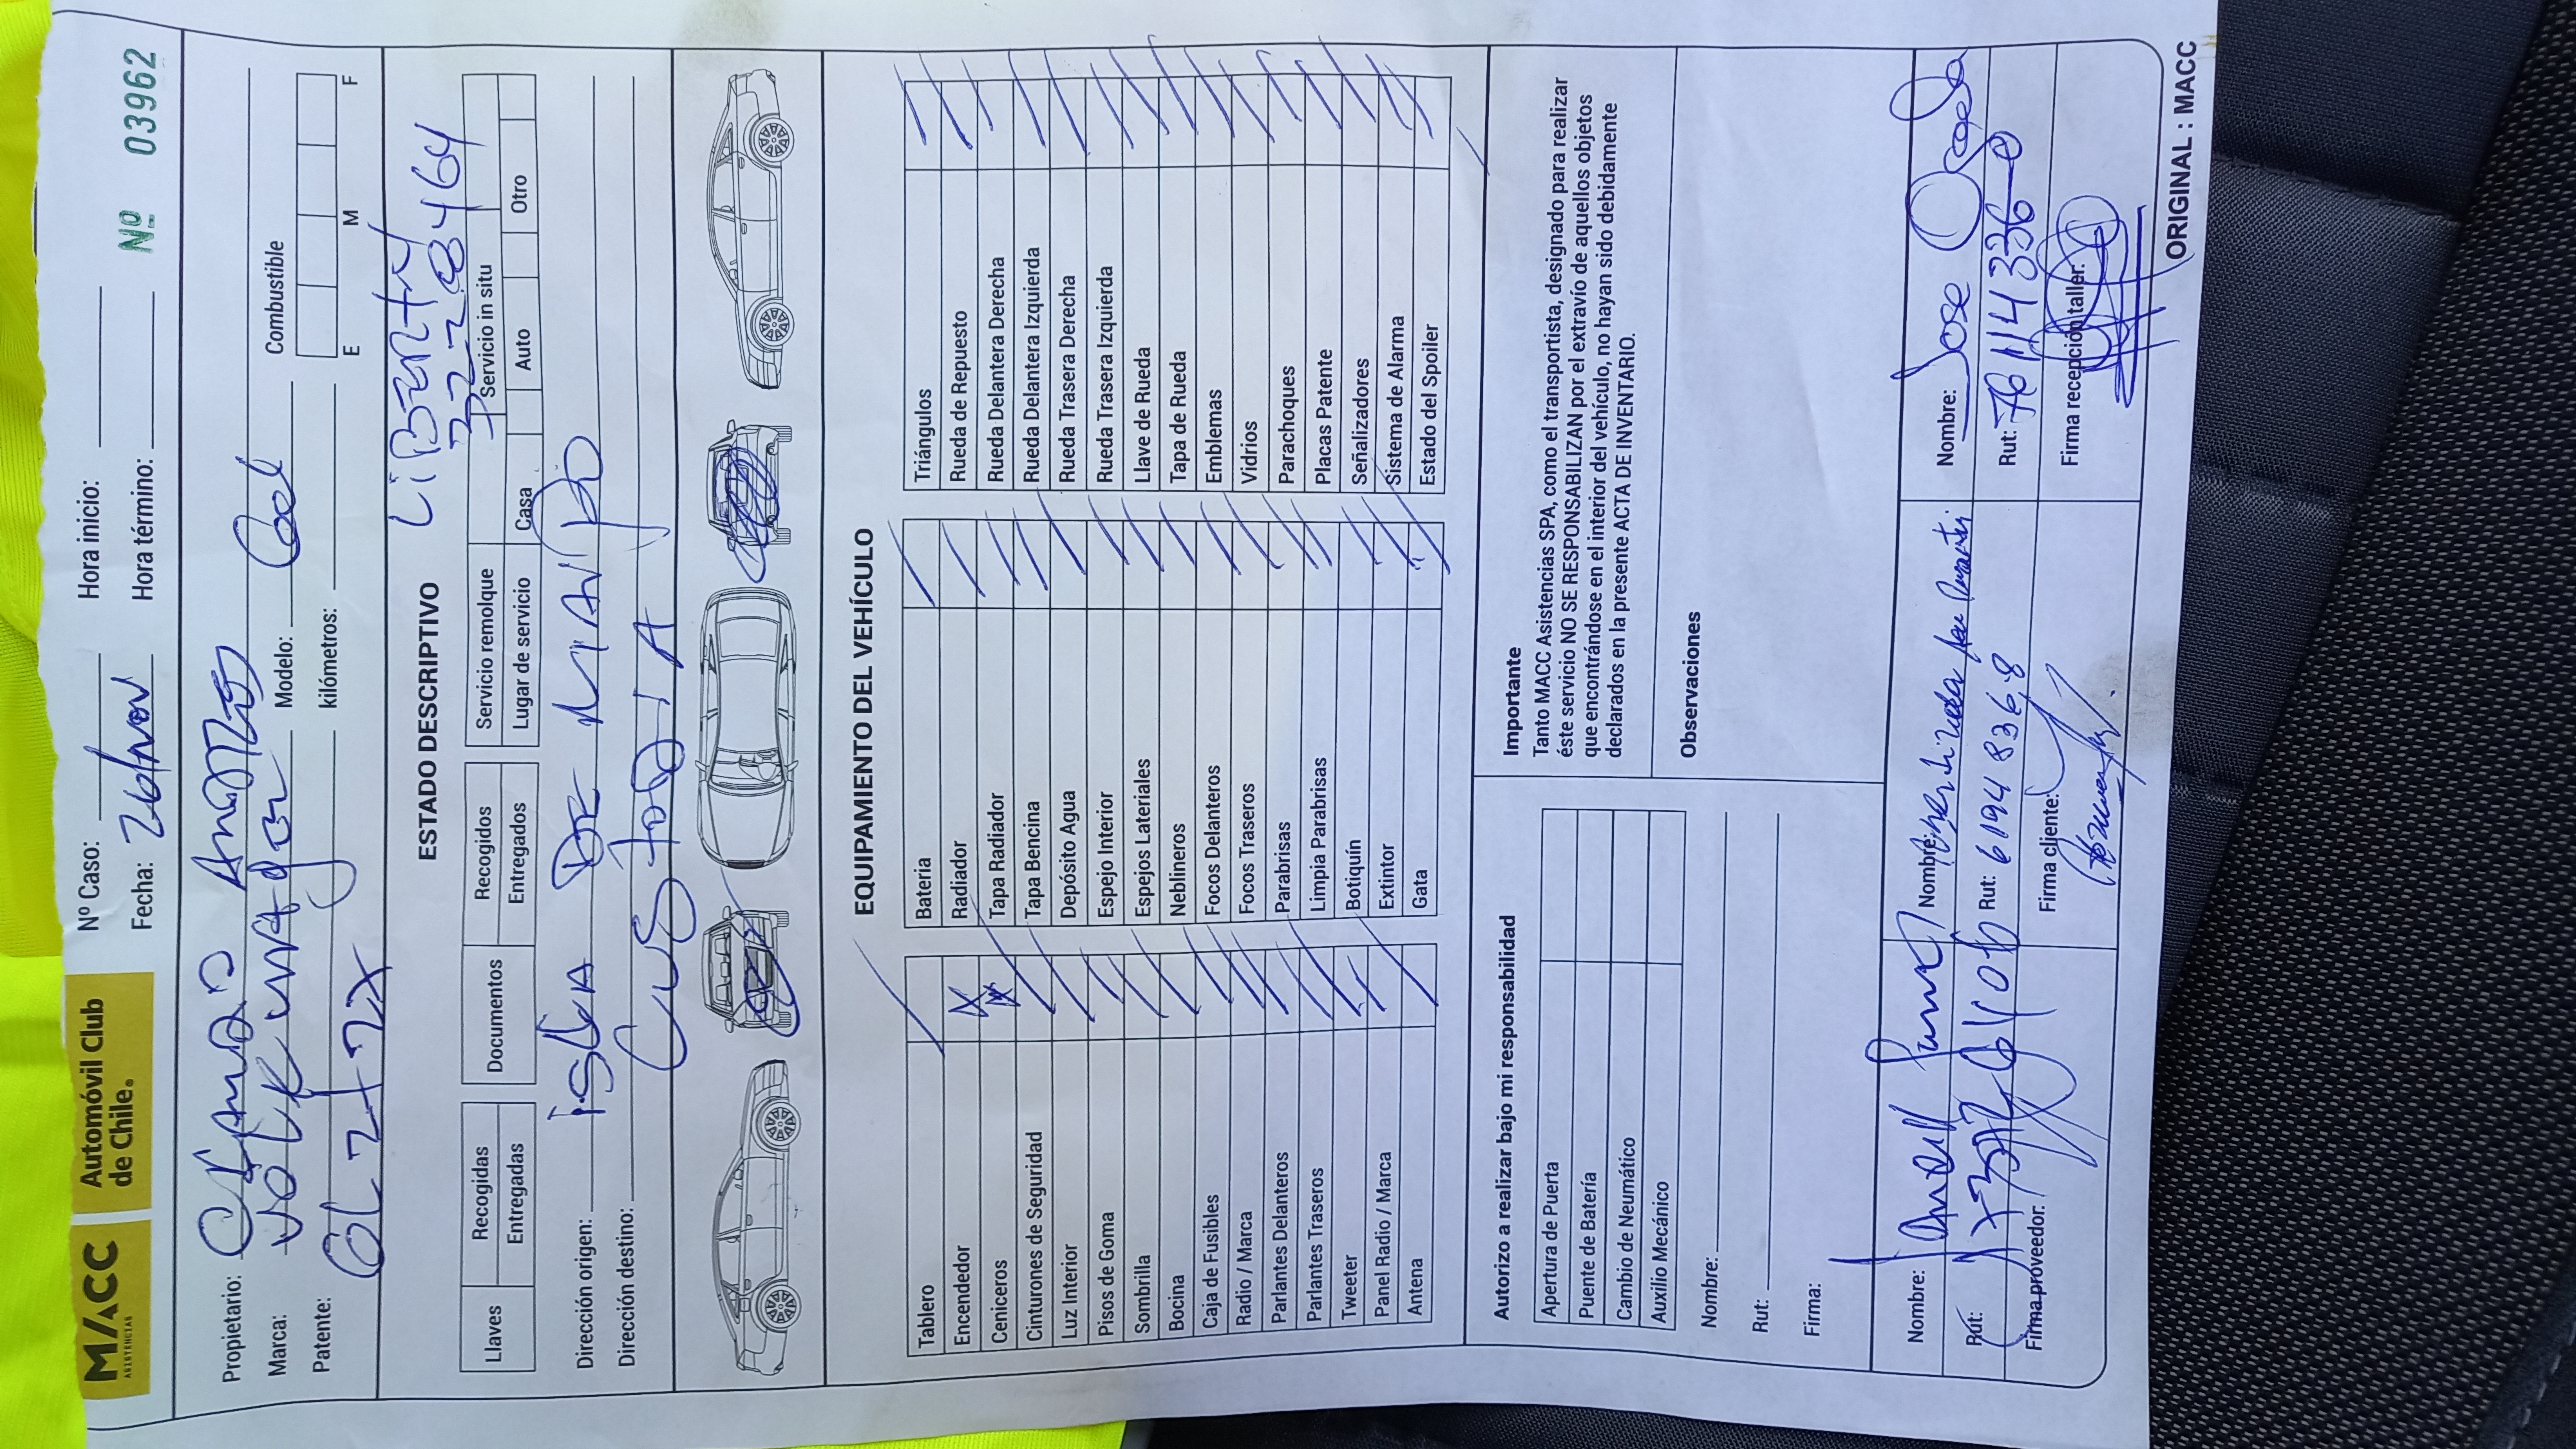 MACC
ASISTENCIAS
Automóvil Club
de Chile®
Nº Caso:
Hora inicio:
Fecha: 26/nov
Hora término:
Nº 03962
Propietario:
Marca:
Modelo:
Combustible
Patente:
kilómetros:
E M F
ESTADO DESCRIPTIVO
LiBERTY
Llaves
Recogidas
Entregadas
Documentos
Recogidos
Entregados
Servicio remolque
Servicio in situ
Lugar de servicio
Casa
Auto
Otro
Dirección origen: iSLA DE MAIPO
Dirección destino: CUSTODIA
EQUIPAMIENTO DEL VEHÍCULO
Tablero
Encendedor
Ceniceros
Cinturones de Seguridad
Luz Interior
Pisos de Goma
Sombrilla
Bocina
Caja de Fusibles
Radio / Marca
Parlantes Delanteros
Parlantes Traseros
Tweeter
Panel Radio / Marca
Antena
Batería
Radiador
Tapa Radiador
Tapa Bencina
Depósito Agua
Espejo Interior
Espejos Lateriales
Neblineros
Focos Delanteros
Focos Traseros
Parabrisas
Limpia Parabrisas
Botiquín
Extintor
Gata
Triángulos
Rueda de Repuesto
Rueda Delantera Derecha
Rueda Delantera Izquierda
Rueda Trasera Derecha
Rueda Trasera Izquierda
Llave de Rueda
Tapa de Rueda
Emblemas
Vidrios
Parachoques
Placas Patente
Señalizadores
Sistema de Alarma
Estado del Spoiler
Autorizo a realizar bajo mi responsabilidad
Apertura de Puerta
Puente de Batería
Cambio de Neumático
Auxilio Mecánico
Nombre:
Rut:
Firma:
Importante
Tanto MACC Asistencias SPA, como el transportista, designado para realizar
éste servicio NO SE RESPONSABILIZAN por el extravío de aquellos objetos
que encontrándose en el interior del vehículo, no hayan sido debidamente
declarados en la presente ACTA DE INVENTARIO.
Observaciones
Nombre:
Rut:
Firma proveedor:
Nombre:
Rut: 6194836,8
Firma cliente:
Nombre: Jose
Rut:
Firma recepción taller:
ORIGINAL : MACC